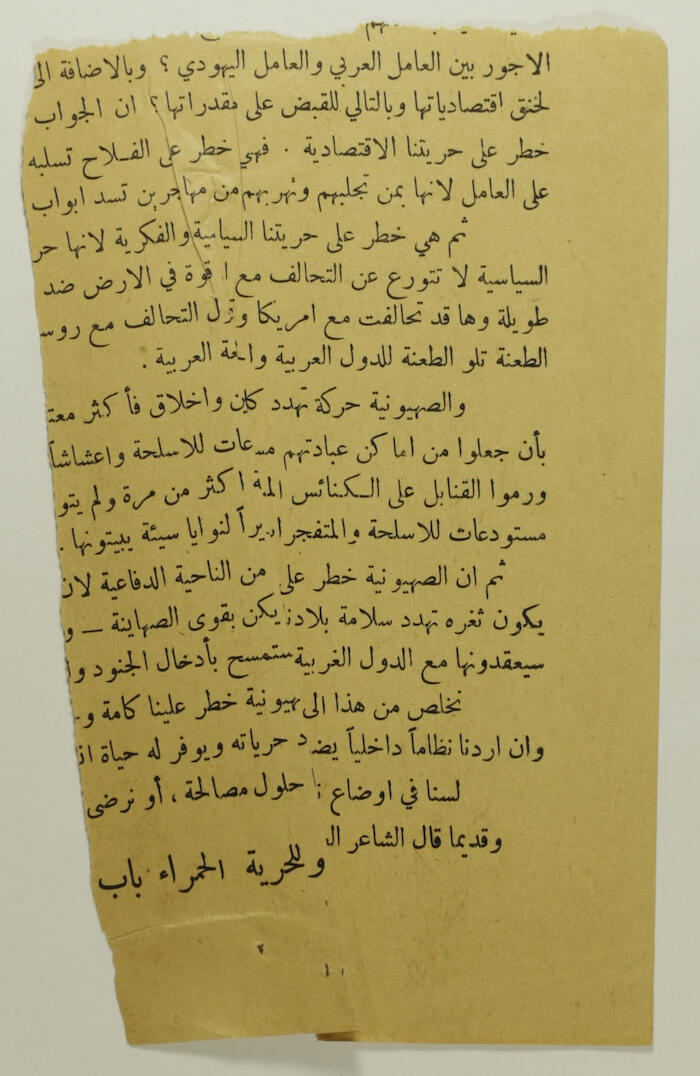 الاجور بين العامل العربي والعامل اليهودي ؟ وبالاضافة الى
لخنق اقتصادياتها وبالتالي للقبض على مقدراتها ؟ ان الجواب
خطر على حريتنا الاقتصادية . فهي خطر على الفلاح تسلبه
على العامل لانها بمن تجلبهم وتهربهم من مهاجرين تسد ابواب
ثم هي خطر على حريتنا السياسية والفكرية لانها حر
السياسية لا تتورع عن التحالف مع ا قوة في الارض ضد
طويلة وها قد تحالفت مع امريكا و التحالف مع روس
الطعنة تلو الطعنة للدول العربية العربية .
والصهيونية حركة تهدد واخلاق فأكثر معت
بأن جعلوا من اماكن عبادتهم للاسلحة واعشاشاً
ورموا القنابل على الكنائس اكثر من مرة ولم يتو
مستودعات للاسلحة لنوايا سيئة يبيتونها .
ثم ان الصهيونية خطر على من الناحية الدفاعية لان
يكون ثغره تهدد سلامة يكن بقوى الصهاينة — و
سيعقدونها مع الدول الغربية ستمسح بأدخال الجنود وا
نخلص من هذا الى هيونية خطر علينا كامة و
وان اردنا نظاماً داخلياً د حرياته ويوفر له حياة
لسنا في اوضاع حلول مصالحة ، أو نرضى
وقديما قال الشاعر ال
وللحرية الحمراء باب